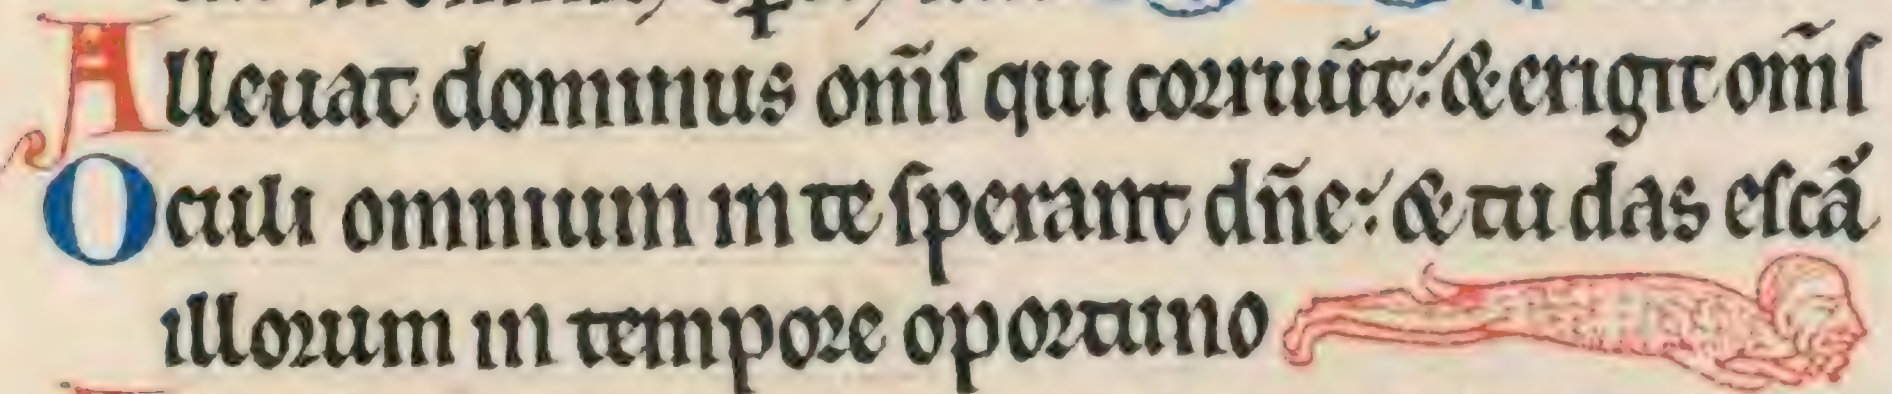 Alleuat dominus om̅s qui corruu̅t: & erigit om̅s
Oculi omnium in te sperant dn̅e: & tu das esca̅
illorum in tempore oportuno